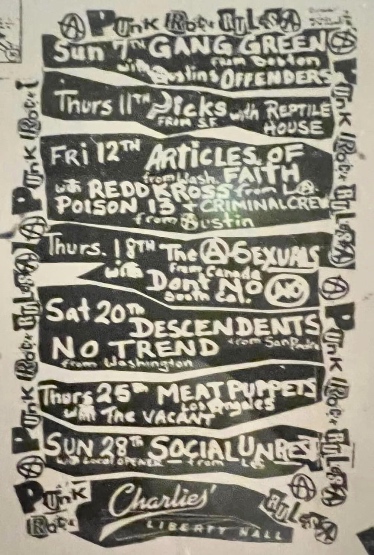 Punk Rock Rules
Sun 7TH GANG GREEN
from Boston
with Austins OFFENDERS
Thurs 11TH Dicks with REPTILE
FROM S.F. HOUSE
FRI 12TH ARTICLES OF
from Wash. FAITH
with REDD KROSS from LA.
POISON 13 + CRIMINAL CREW
from Austin
Thurs. 18TH The A-SEXUALS
from Canada
with Don't NO NO
South Cal.
Sat 20th DESCENDENTS
NO TREND from San Pedro
from Washington
Thurs 25th MEAT PUPPETS
Los Angeles
with The VACANT
SUN 28TH SOCIAL UNREST
with Local OPENER — from
Punk Rock Rules
Charlies'
LIBERTY HALL